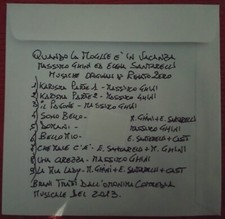 QUANDO LA MOGLIE E' IN VACANZA
MASSIMO GHINI ED ELENA SANTARELLI
MUSICHE ORIGINALI DI RENATO ZERO
1) KARISMA PARTE 1 - MASSIMO GHINI
2) KARISMA PARTE 2 - MASSIMO GHINI
3) IL PAVONE - MASSIMO GHINI
4) SONO BELLO - M. GHINI + E. SANTARELLI
5) DOMANI - MASSIMO GHINI
6) BELLO MIO - E. SANTARELLI + CAST
7) CHE MALE C'E' - E. SANTARELLI + M. GHINI
8) UNA CAREZZA - MASSIMO GHINI
9) LA TUA LADY - M. GHINI + E. SANTARELLI + CAST
BRANI TRATTI DALL'OMONIMA COMMEDIA
MUSICALE DEL 2013.